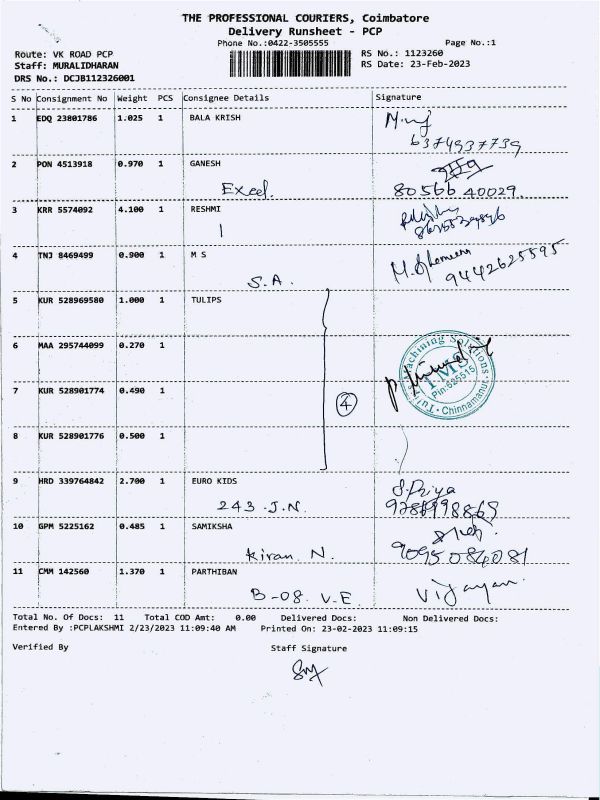 THE PROFESSIONAL COURIERS, Coimbatore
Delivery Runsheet - PCP
Phone No.:0422-3505555
Page No.:1
Route: VK ROAD PCP
RS No.: 1123260
Staff: MURALIDHARAN
RS Date: 23-Feb-2023
DRS No.: DCJB112326001
S No Consignment No Weight PCS Consignee Details Signature
1 EDQ 23801786 1.025 1 BALA KRISH
6374937739
2 PON 4513918 0.970 1 GANESH
Excel. 80566 40029.
3 KRR 5574092 4.100 1 RESHMI
1
4 TNJ 8469499 0.900 1 M S
S.A. 9442625595
5 KUR 528969580 1.000 1 TULIPS
6 MAA 295744099 0.270 1
7 KUR 528901774 0.490 1
4
8 KUR 528901776 0.500 1
Machining Solutions
IMS
Pin-625515
Chinnamanur
9 HRD 339764842 2.700 1 EURO KIDS S.Priya
243 J.N.
10 GPM 5225162 0.485 1 SAMIKSHA
Kiran N. 9095084081
11 CMM 142560 1.370 1 PARTHIBAN
B-08. V.E. Vijayan.
Total No. Of Docs: 11 Total COD Amt: 0.00 Delivered Docs: Non Delivered Docs:
Entered By :PCPLAKSHMI 2/23/2023 11:09:40 AM Printed On: 23-02-2023 11:09:15
Verified By Staff Signature